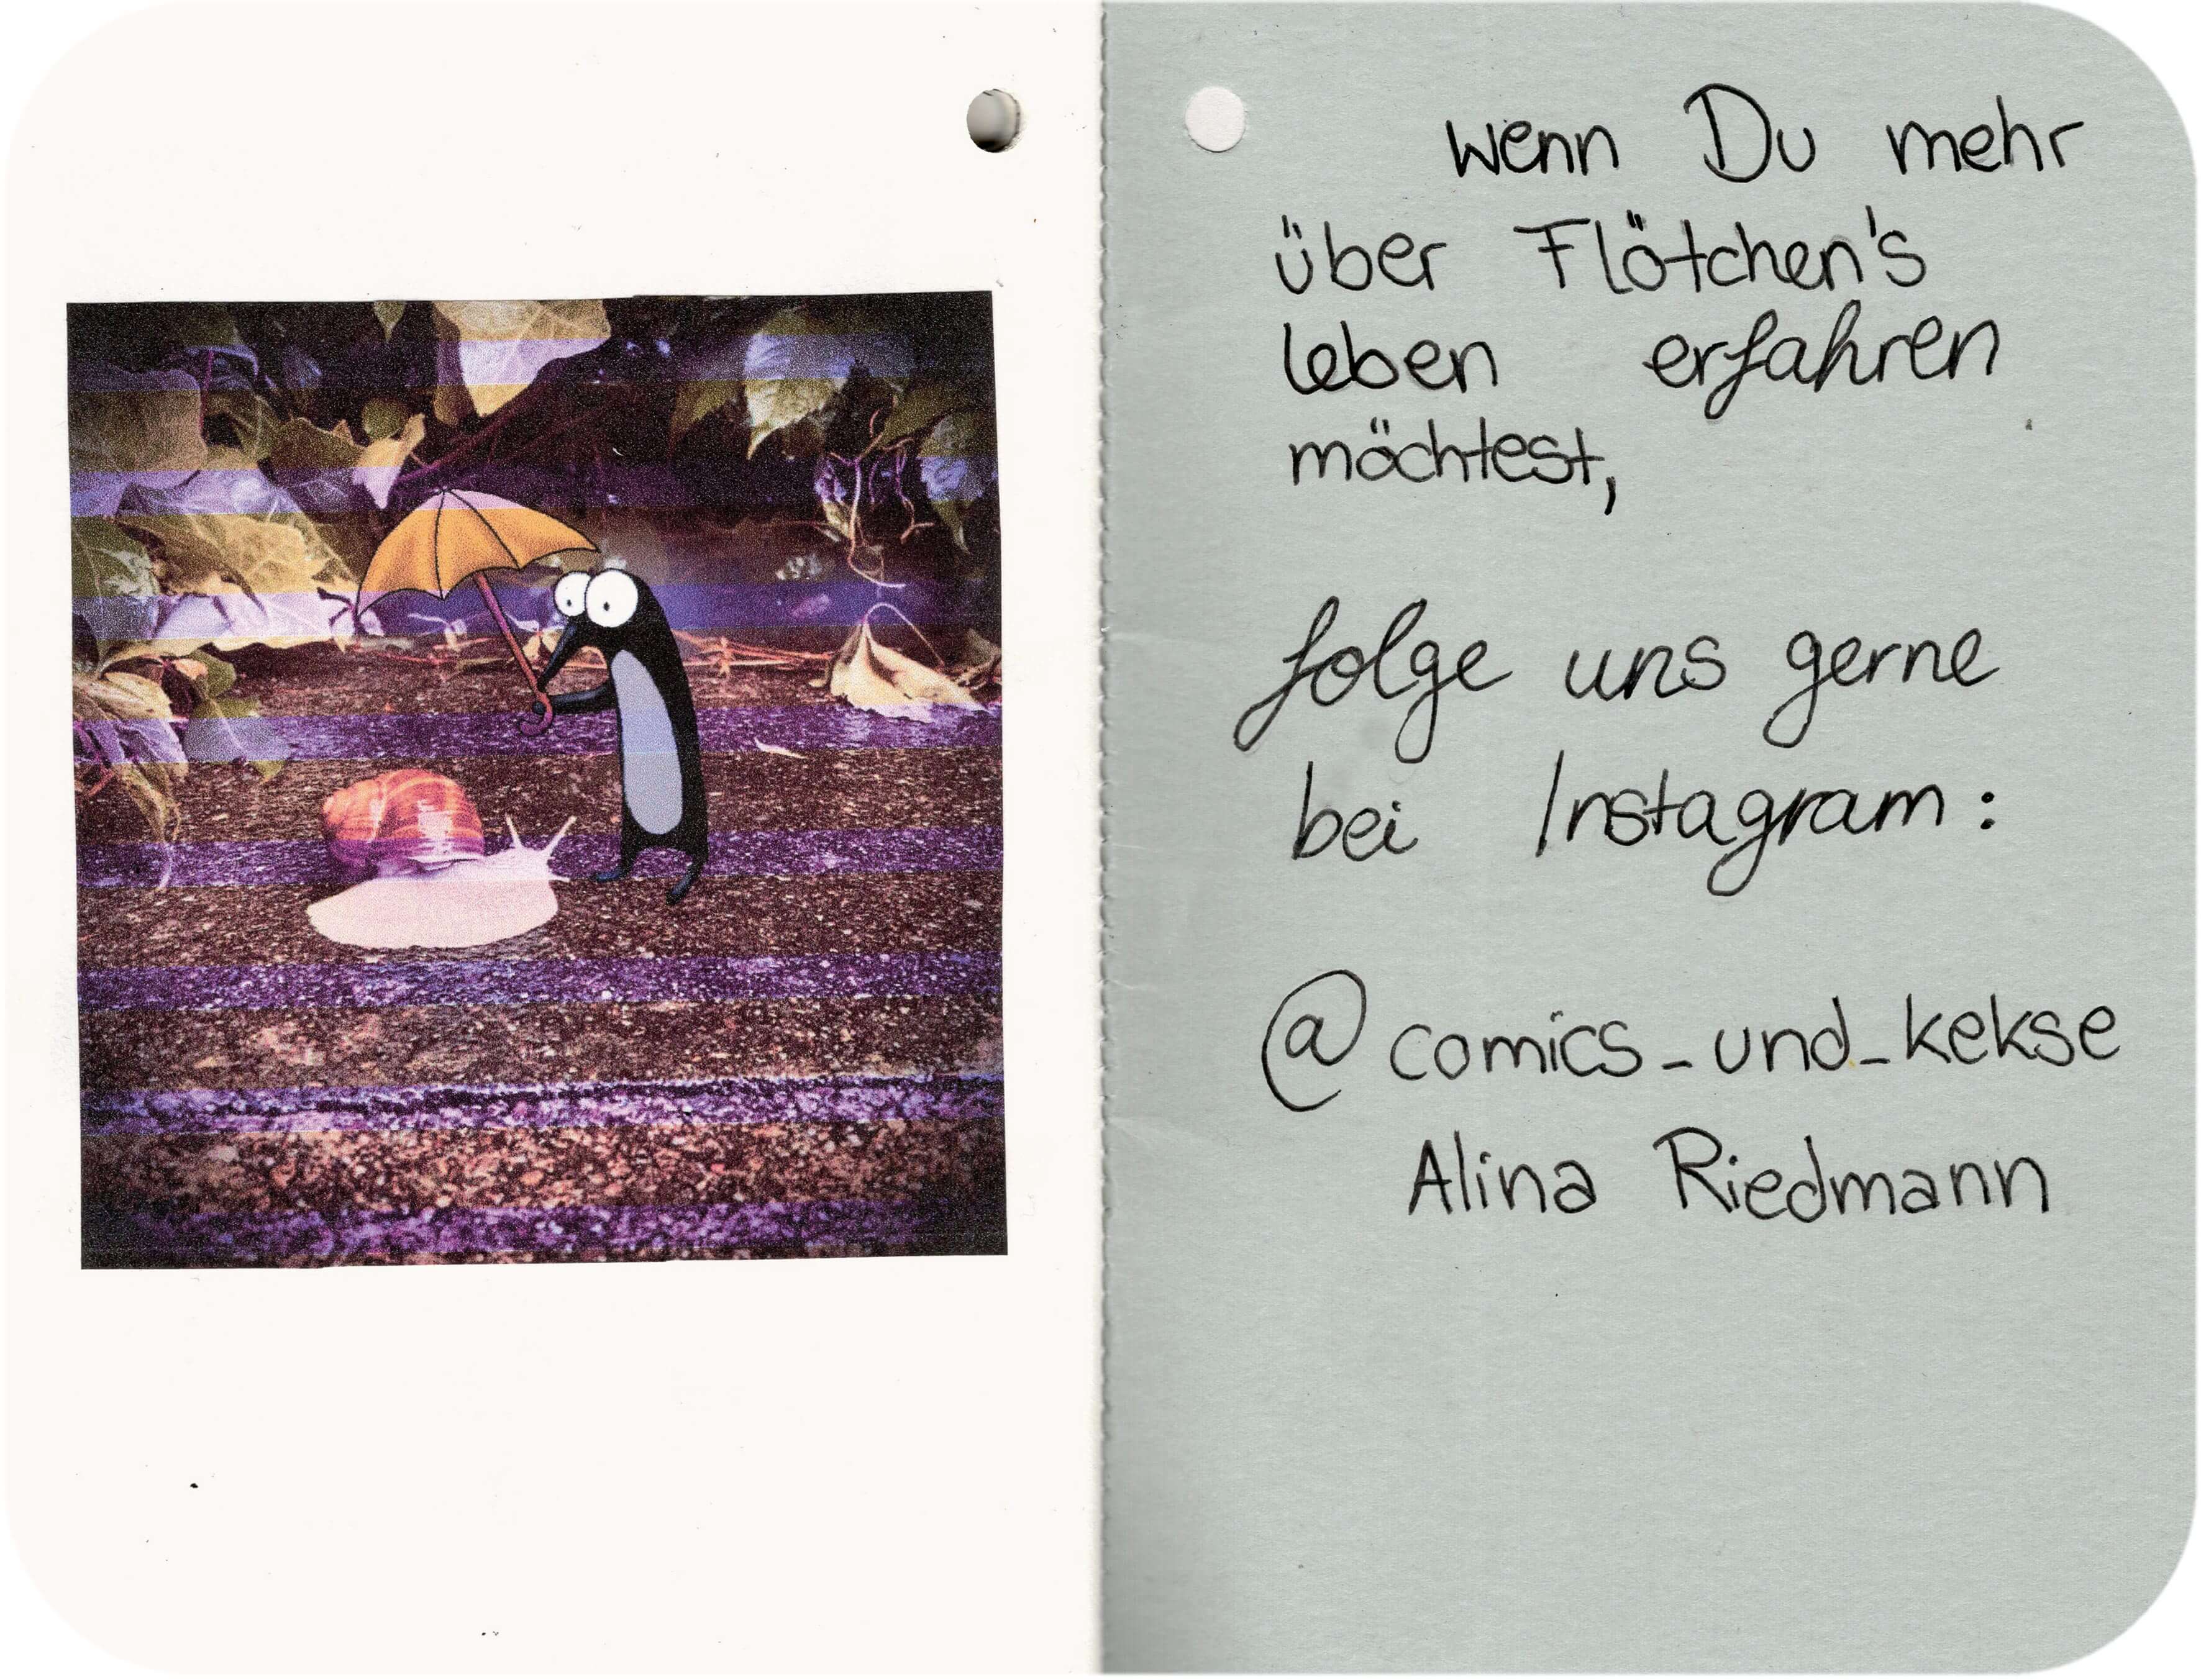 wenn Du mehr
über Flötchen's
leben erfahren
möchtest,
folge uns gerne
bei Instagram:
@comics_und_kekse
Alina Riedmann